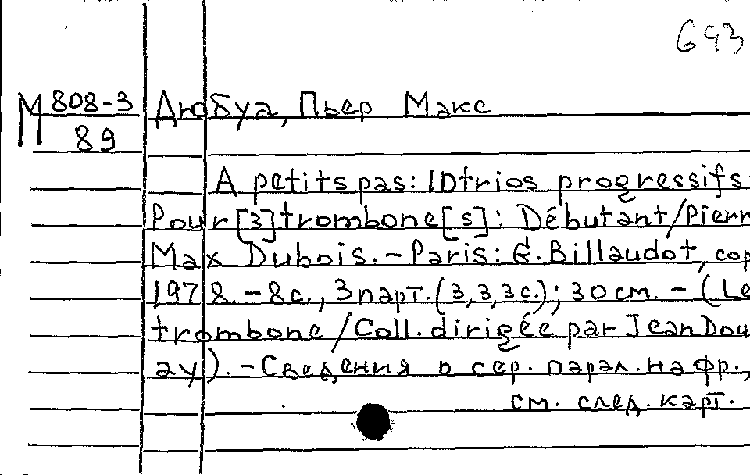 693
М 808-3
89
Дюбуа, Пьер Макс
A petits pas: 10 trios progressifs
Pour [3] trombone[s]: Débutant/Pierr
Max Dubois. - Paris: G. Billaudot, cop
1978. - 8с., 3 парт. (3,3,3с.); 30 см. - (Le
trombone/Coll. dirigée par Jean Dou
ay). - Сведения о сер. парал. на фр.,
см. след. карт.